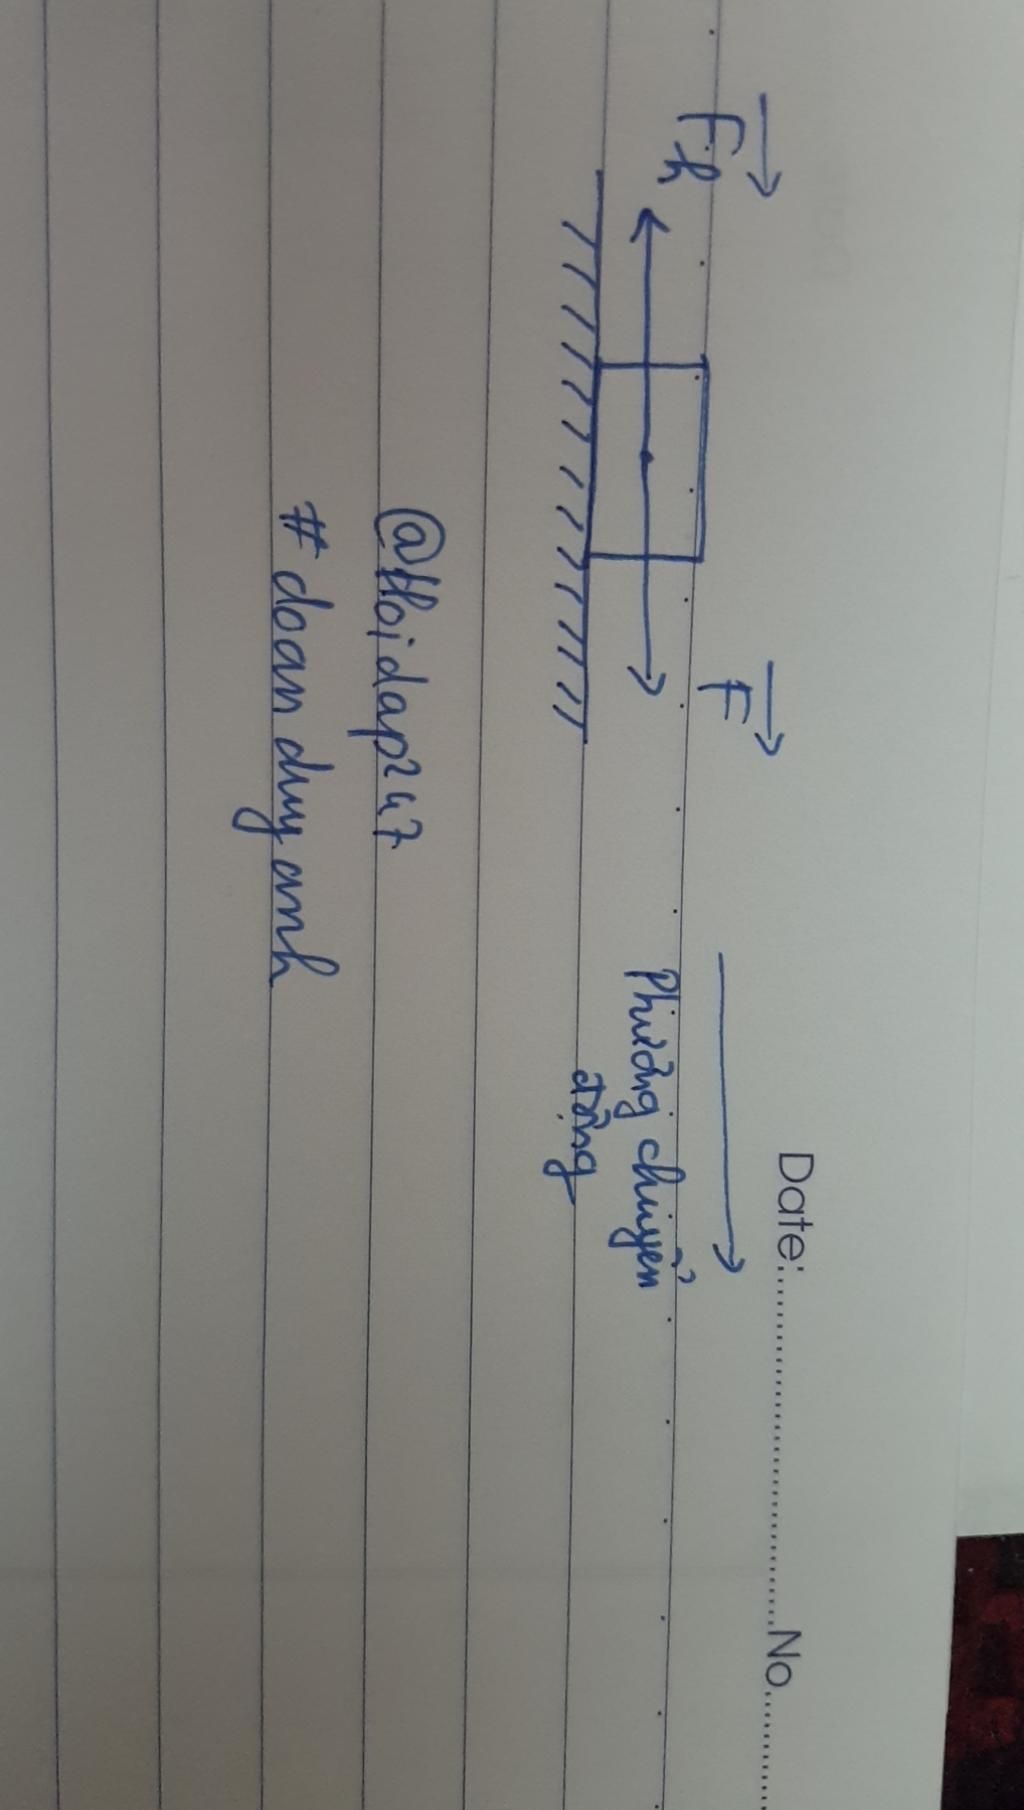 Date: No.
Fh
F
Phương chuyển
động
@Hoidap247
# doanduyanh